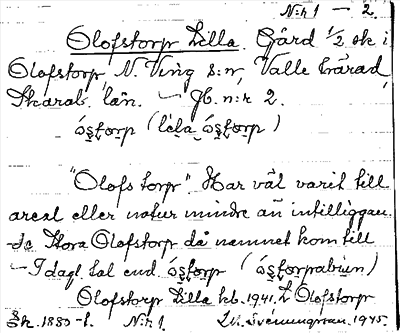 N:r 1 — 2.
Olofstorp Lilla. Gård 1/2 sk i
Olofstorp, N. Ving s:n, Valle härad,
Skarab. län. — Jb. n:r 2.
ósstorp (lìla ósstorp)
"Olofs torp". Har väl varit till
areal eller natur mindre än intilliggan-
de Stora Olofstorp då namnet kom till
— I dagl. tal end. ósstorp (ósstorpabÿun)
Olofstorp Lilla hb. 1941. L Olofstorp
Ek. 1880-t. N:r 1. 1945.